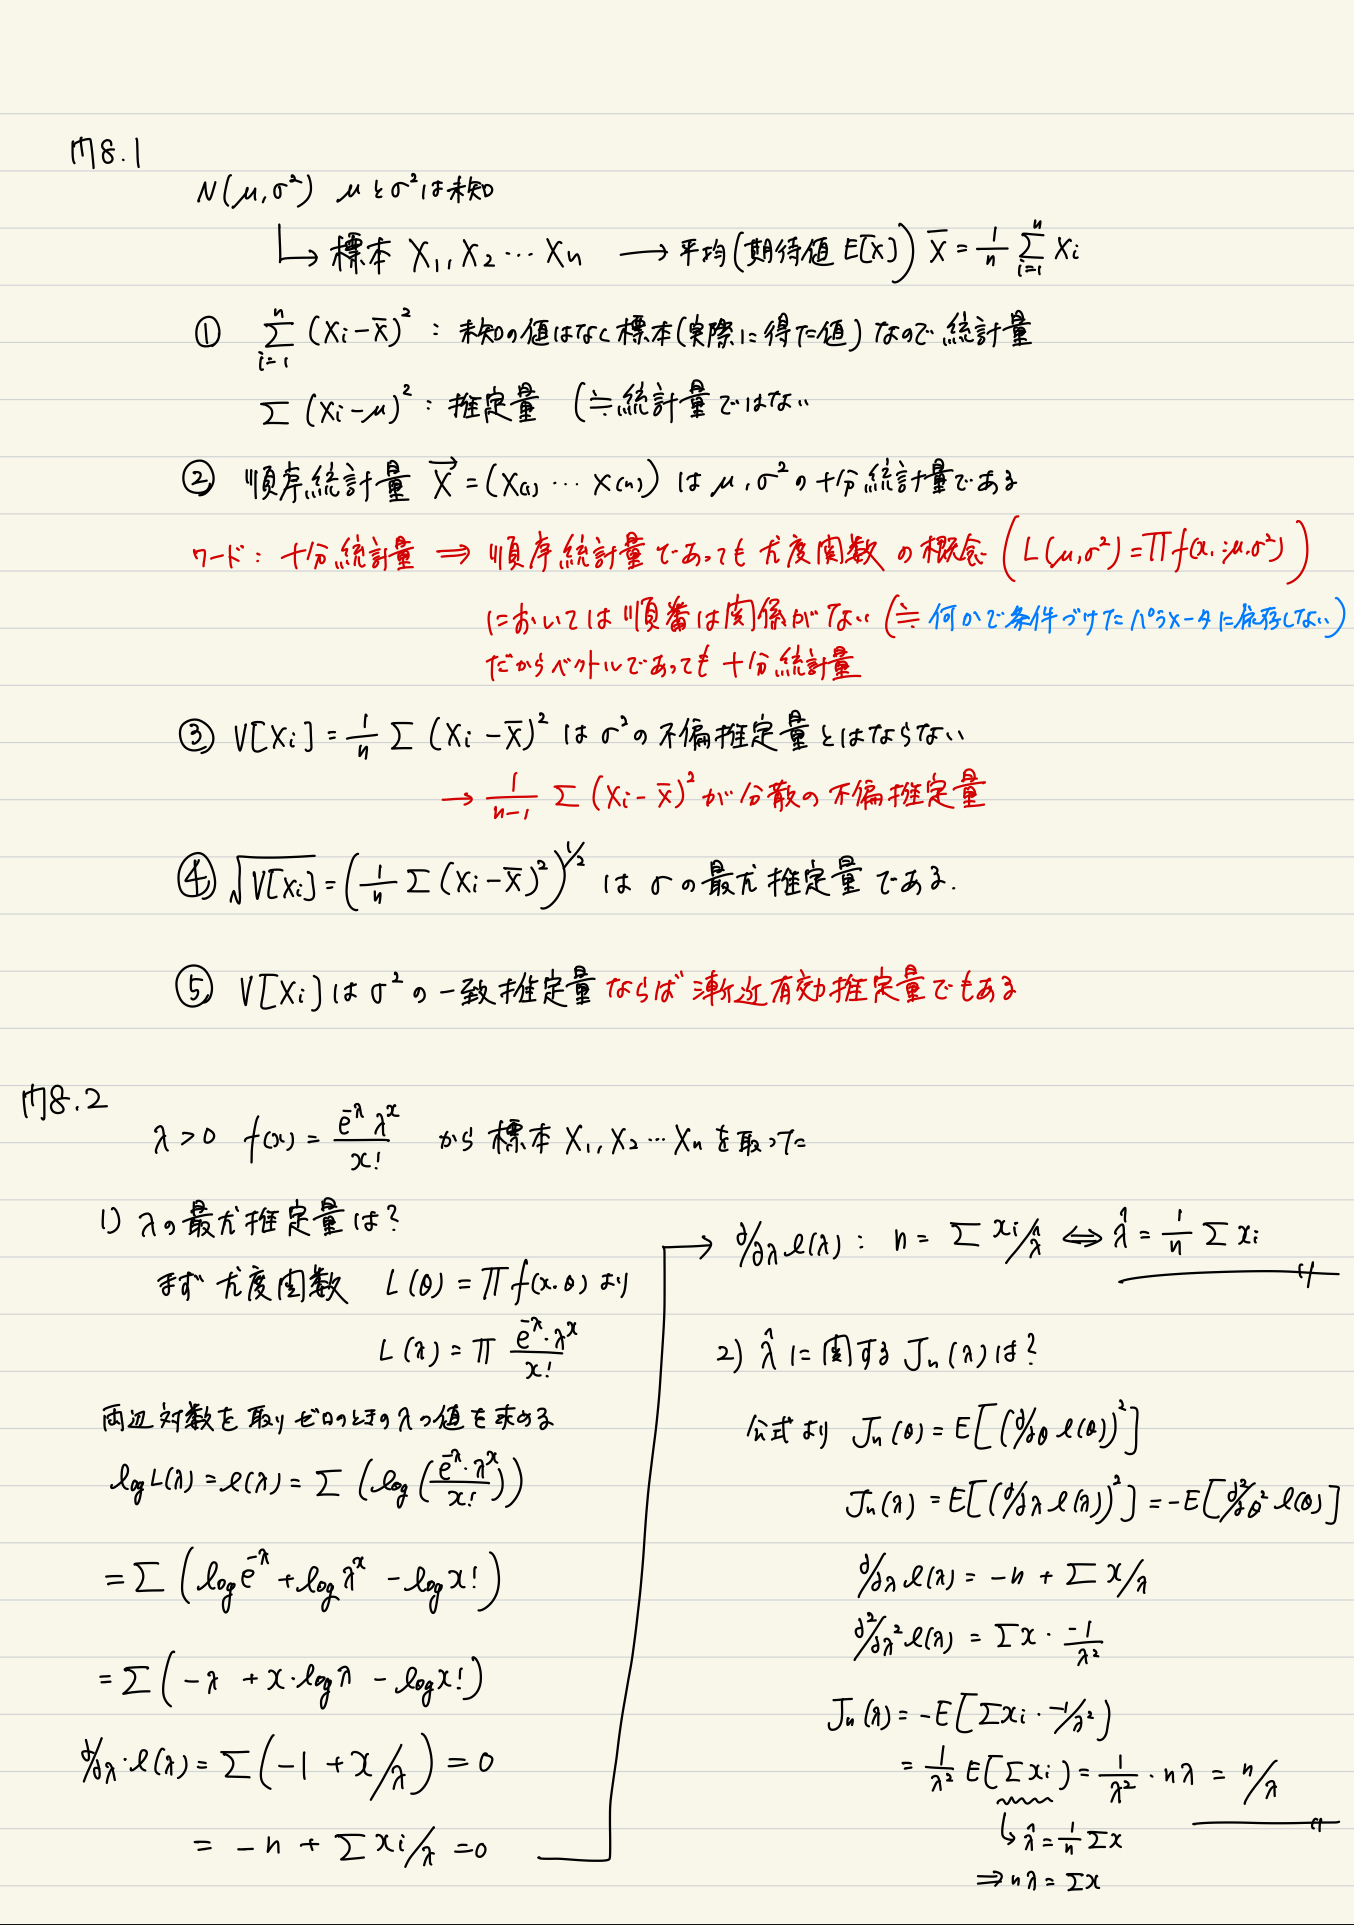 問8.1
N(μ,σ²) μとσ²は未知
↳ 標本 X₁, X₂ … Xn → 平均(期待値 E[X]) X̄ = 1/n Σ_{i=1}^{n} Xi
① Σ_{i=1}^{n} (Xi−X̄)² : 未知の値はなく標本(実際に得た値)なので統計量
Σ (Xi−μ)² : 推定量 (≒統計量ではない
② 順序統計量 X⃗ = (X(1) … X(n)) は μ,σ²の十分統計量である
ワード: 十分統計量 ⇒ 順序統計量であっても尤度関数の概念 (L(μ,σ²)=Πf(x,;μ,σ²))
においては順番は関係がない (≒ 何かで条件づけたパラメータに依存しない)
だからベクトルであっても十分統計量
③ V[Xi] = 1/n Σ (Xi−X̄)² は σ²の不偏推定量とはならない
→ 1/(n−1) Σ (Xi−X̄)² が分散の不偏推定量
④ √V[Xi] = (1/n Σ (Xi−X̄)²)^{1/2} は σの最尤推定量である.
⑤ V[Xi]は σ²の一致推定量ならば漸近有効推定量でもある
問8.2
λ>0 f(x) = e^{-λ} λ^x / x! から 標本 X₁, X₂ … Xn を取った
1) λの最尤推定量は?
まず 尤度関数 L(θ) = Πf(x.θ) より
L(λ) = Π e^{-λ}·λ^x / x!
両辺対数を取りゼロのときのλの値を求める
log L(λ) = l(λ) = Σ (log (e^{-λ}·λ^x / x!))
= Σ (log e^{-λ} + log λ^x − log x!)
= Σ (−λ + x·log λ − log x!)
d/dλ·l(λ) = Σ(−1 + x/λ) = 0
= −n + Σ xi/λ = 0
→ d/dλ l(λ) : n = Σ xi/λ ⇔ λ̂ = 1/n Σ xi
2) λ̂ に関する Jn(λ)は?
公式より Jn(θ) = E[(d/dθ l(θ))²]
Jn(λ) = E[(d/dλ l(λ))²] = −E[d²/dθ² l(θ)]
d/dλ l(λ) = −n + Σ x/λ
d²/dλ² l(λ) = Σx · −1/λ²
Jn(λ) = −E[Σxi · −1/λ²]
= 1/λ² E[Σxi] = 1/λ² · nλ = n/λ
↳ λ̂ = 1/n Σx
⇒ nλ = Σx